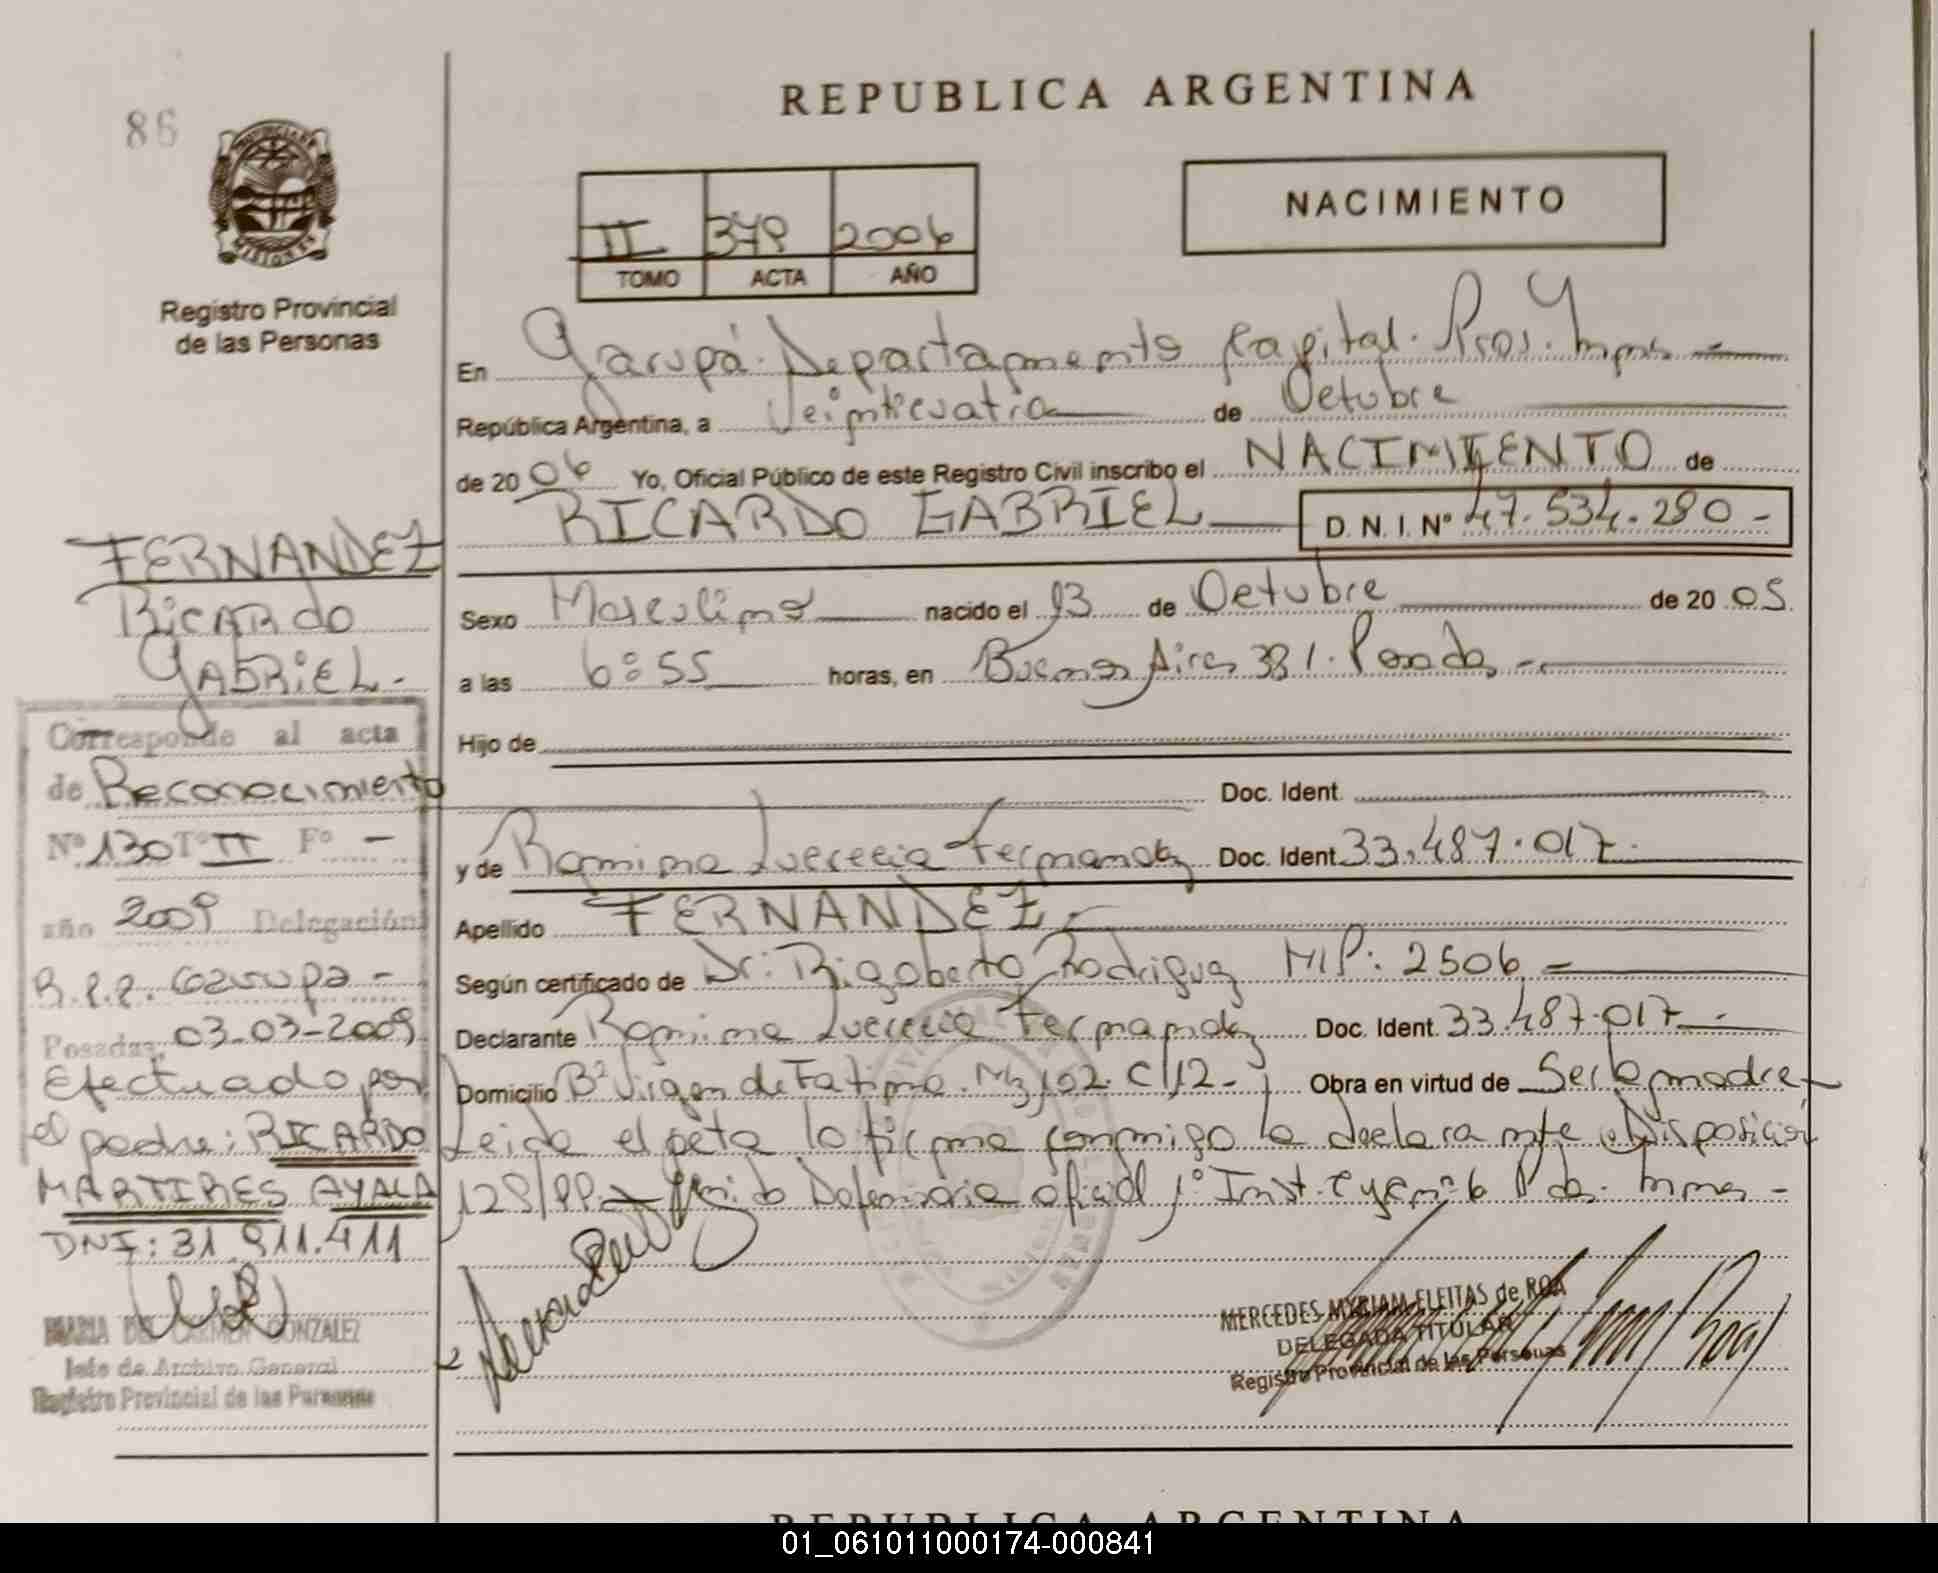 86
REPUBLICA ARGENTINA
PROVINCIA DE MISIONES
Registro Provincial
de las Personas
II 379 2006
TOMO ACTA AÑO
NACIMIENTO
En Garupá. Departamento Capital. Mnes
República Argentina, a Veinticuatro de Octubre
de 20 06 Yo, Oficial Público de este Registro Civil inscribo el NACIMIENTO de
RICARDO GABRIEL D.N.I. Nº 47.534.290 -
Sexo Masculino nacido el 13 de Octubre de 20 05
a las 6:55 horas, en Buenos Aires 331. Posadas -
Hijo de
Doc. Ident.
y de Romina Lucrecia Fernandez Doc. Ident. 33.487.017.
Apellido FERNANDEZ -
Según certificado de Dr: Rigoberto Rodriguez MP: 2506 -
Declarante Romina Lucrecia Fernandez Doc. Ident. 33.487.017 -
Domicilio Bº Virgen de Fatima. Mz 102. C/12 - Obra en virtud de Ser la madre -
Leida el acta la firma conmigo la declarante Disposición
Defensoria oficial 1º Inst.
MERCEDES MYRIAM FLEITAS de ROA
DELEGADA TITULAR
Registro Provincial de las Personas
FERNANDEZ
RICARDO
GABRIEL -
Corresponde al acta
de Reconocimiento
Nº 130 Tº II Fº -
año 2009 Delegación
R.P.P. Garupa -
Posadas, 03-03-2009
Efectuado por
el padre: RICARDO
MARTIRES AYALA
DNI: 31.911.411
MARIA DEL CARMEN GONZALEZ
Jefe de Archivo General
Registro Provincial de las Personas
REPUBLICA ARGENTINA
01_061011000174-000841